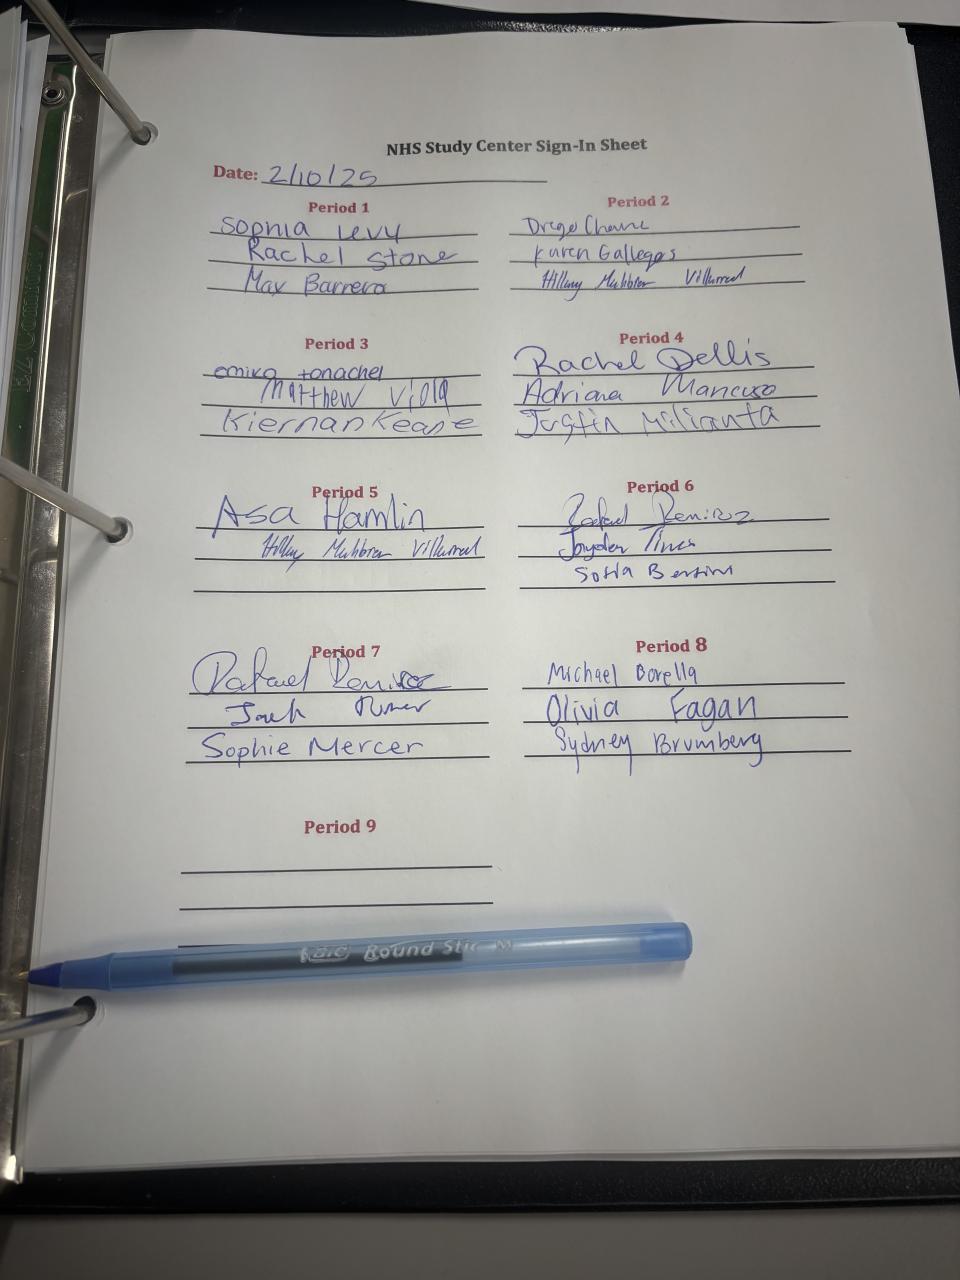 NHS Study Center Sign-In Sheet
Date: 2/10/25
Period 1
Sophia Levy
Rachel Stone
Max Barrera
Period 2
Karen Gallegos
Hillary Villarreal
Period 3
emika tonachel
Matthew Viola
Kiernan Keane
Period 4
Rachel Dellis
Adriana Mancuso
Justin Milianta
Period 5
Asa Hamlin
Hillary Villarreal
Period 6
Rafael Ramirez
Jayden
Sofia
Period 7
Rafael Ramirez
Sophie Mercer
Period 8
Michael Borella
Olivia Fagan
Sydney Brumberg
Period 9
BIC Round Stic M